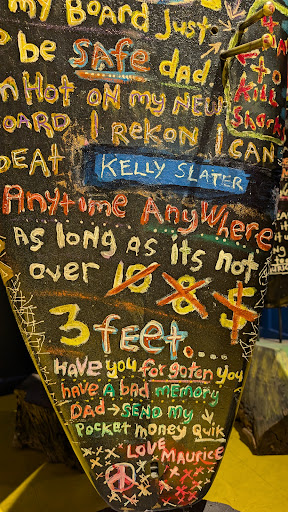 my BOARD Just
to be SAFE dad
to
Kill
Sharks
m Hot ON my NEW
BOARD I REKON I CAN
BEAT KELLY SLATER
Anytime Anywhere
As long as its not
over 10 8 5
3 feet....
HAVE you forgoten you
have A bad memory
DAD → SEND my
Pocket money Quik
LOVE
Maurice
xxx